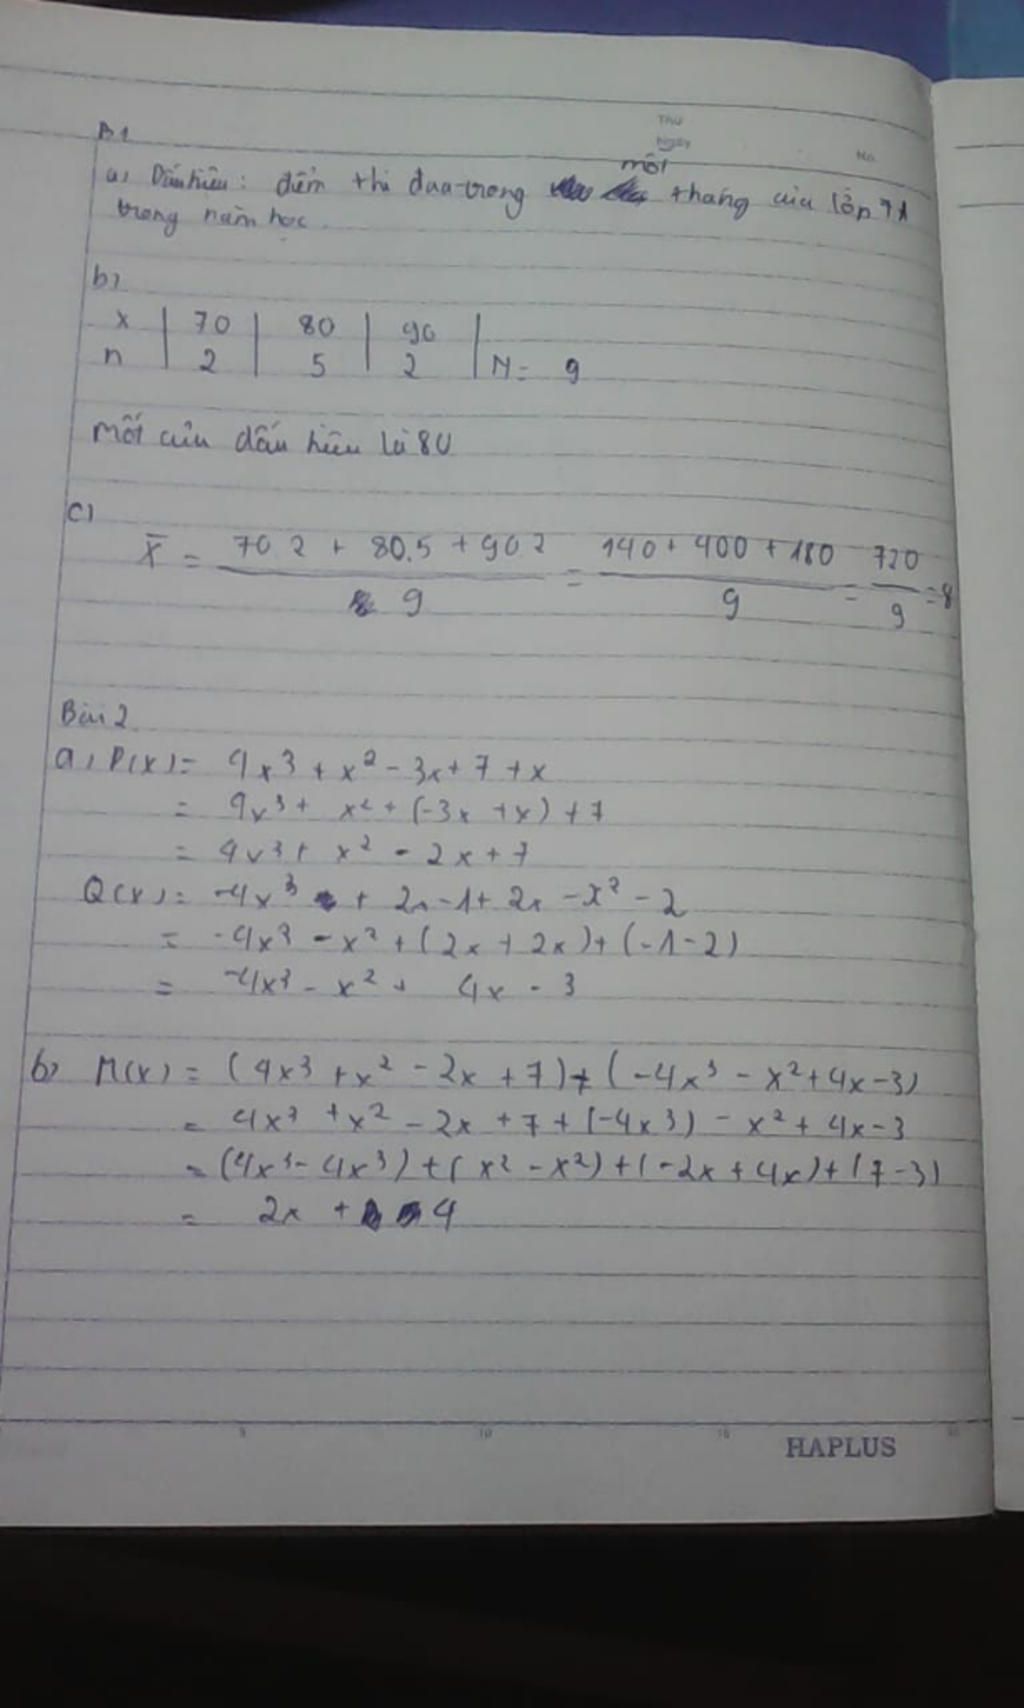 THU
Ngay
No.
B1
a, Dấu hiệu: điểm thi đua trong một tháng của lớp 7A
trong năm học.
b,
x | 70 | 80 | 90 |
n | 2 | 5 | 2 | N= 9
mốt của dấu hiệu là 80
c,
X̄ = (70.2 + 80.5 + 90.2)/9 = (140 + 400 + 180)/9 = 720/9 = 8
Bài 2
a, P(x) = 4x³ + x² - 3x + 7 + x
= 4x³ + x² + (-3x + x) + 7
= 4x³ + x² - 2x + 7
Q(x) = -4x³ + 2x - 1 + 2x - x² - 2
= -4x³ - x² + (2x + 2x) + (-1 - 2)
= -4x³ - x² + 4x - 3
b, M(x) = (4x³ + x² - 2x + 7) + (-4x³ - x² + 4x - 3)
= 4x³ + x² - 2x + 7 + (-4x³) - x² + 4x - 3
= (4x³ - 4x³) + (x² - x²) + (-2x + 4x) + (7 - 3)
= 2x + 4
5 10 15 20
HAPLUS